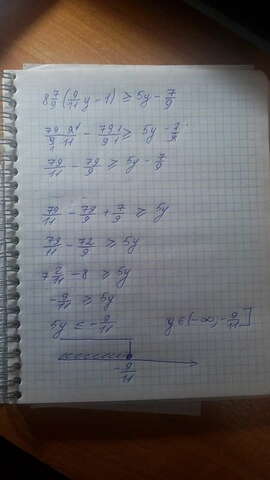 8 7/9 (9/11 y - 1) ≥ 5y - 7/9
79/9 · 9/11 - 79/9 · 1/1 ≥ 5y - 7/9
79/11 - 79/9 ≥ 5y - 7/9
79/11 - 79/9 + 7/9 ≥ 5y
79/11 - 72/9 ≥ 5y
7 2/11 - 8 ≥ 5y
- 9/11 ≥ 5y
5y ≤ - 9/11 y ∈ (-∞; - 9/11]
- 9/11